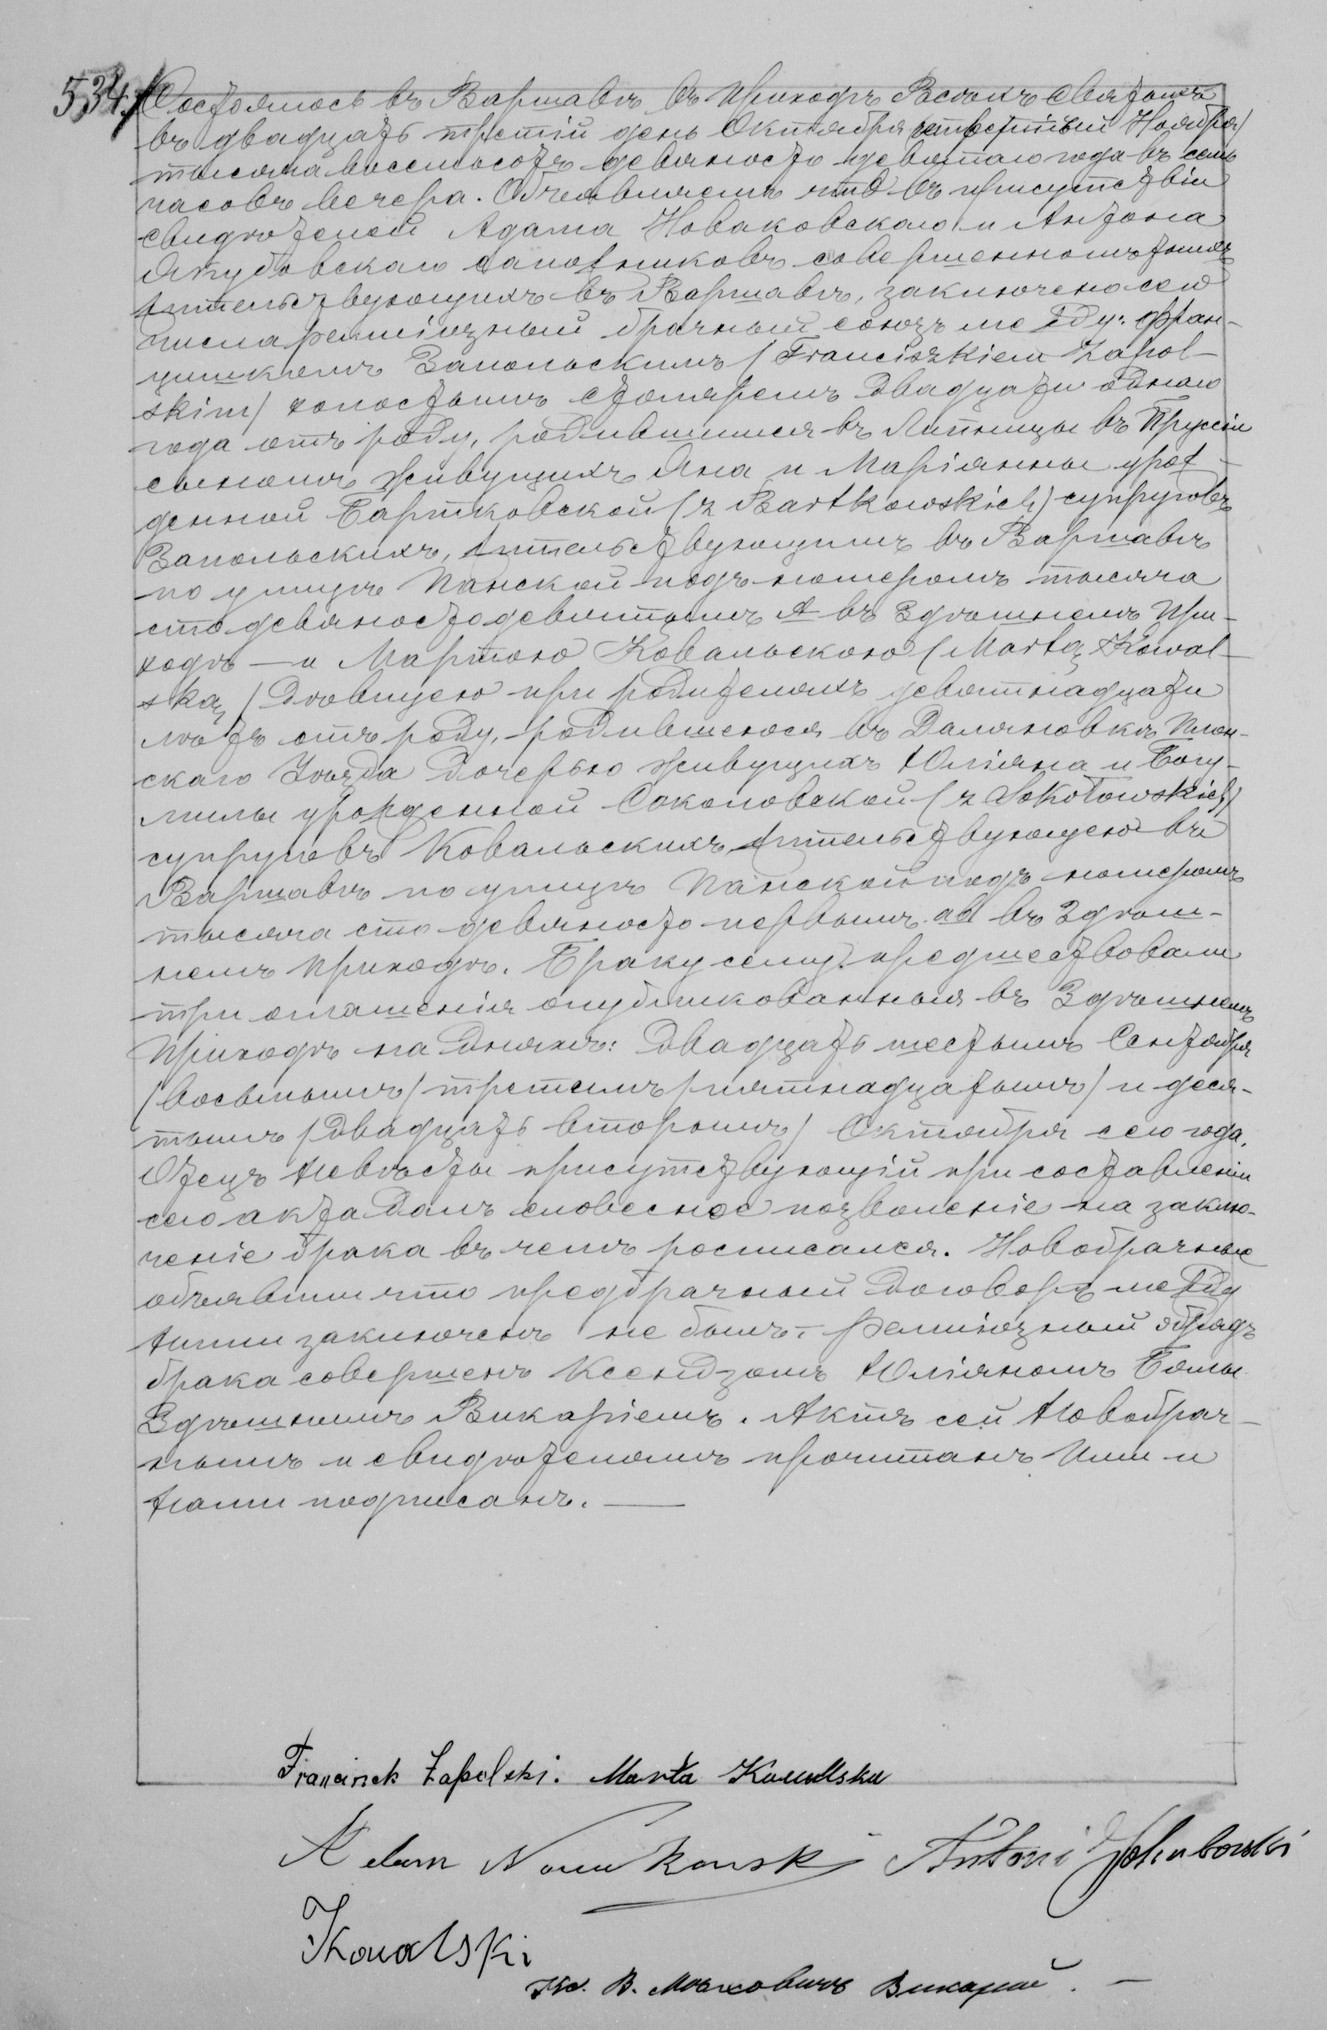 534.
Состоялось въ Варшавѣ въ приходѣ Всѣхъ Святыхъ
въ двадцать третій день Октября /четвертый Ноября/
тысяча восемьсотъ девяносто девятаго года въ семь
часовъ вечера. Объявляемъ что въ присутствіи
свидѣтелей Адама Новаковскаго и Антона
Якубовскаго сапожниковъ совершеннолѣтнихъ
жительствующихъ въ Варшавѣ, заключено сего
числа религіозный брачный союзъ между: Фран-
цишкомъ Запольскимъ /Franciszkiem Zapol-
skim/ холостымъ столяремъ двадцати одного
года отъ роду, родившимся въ Липницы въ Пруссіи
сыномъ живущихъ Яна и Маріянны урож-
денной Бартковской /z Bartkowskich/ супруговъ
Запольскихъ, жительствующимъ въ Варшавѣ
по улицѣ Панской подъ номеромъ тысяча
сто девяносто девятымъ А въ здѣшнемъ при-
ходѣ — и Мартою Ковальскою (Martą Kowal-
ską / дѣвицею при родителяхъ девятнадцати
лѣтъ отъ роду, родившеюся въ Далановкѣ Плон-
скаго Уѣзда дочерью живущихъ Юліяна и Богу-
милы урожденной Соколовской (z Sokołowskich)
супруговъ Ковальскихъ, жительствующею въ
Варшавѣ по улицѣ Панской подъ номеромъ
тысяча сто девяносто первымъ ad въ здѣш-
немъ приходѣ. Браку сему предшествовали
три оглашенія опубликованныя въ здѣшнемъ
приходѣ на дняхъ: двадцать шестымъ Сентября
/восьмымъ/ третьемъ /пятнадцатымъ/ и деся-
тымъ /двадцать вторымъ/ Октября сего года.
Отецъ невѣсты присутствующій при составленіи
сего акта далъ словесное позволеніе на заклю-
ченіе брака въ чемъ росписался. Новобрачные
объявили что предбрачный договоръ между
ними заключенъ не былъ. Религіозный обрядъ
брака совершенъ Ксендзомъ Юліяномъ
Здѣшнимъ Викаріемъ. Актъ сей Новобрач-
нымъ и свидѣтелямъ прочитанъ ими и
нами подписанъ. —
Francisek Zapolski. Marta Kowalska
Adam Nowakowski Antoni Jakubowski
Kowalski
Кс. В. Маховичъ Викарій. —